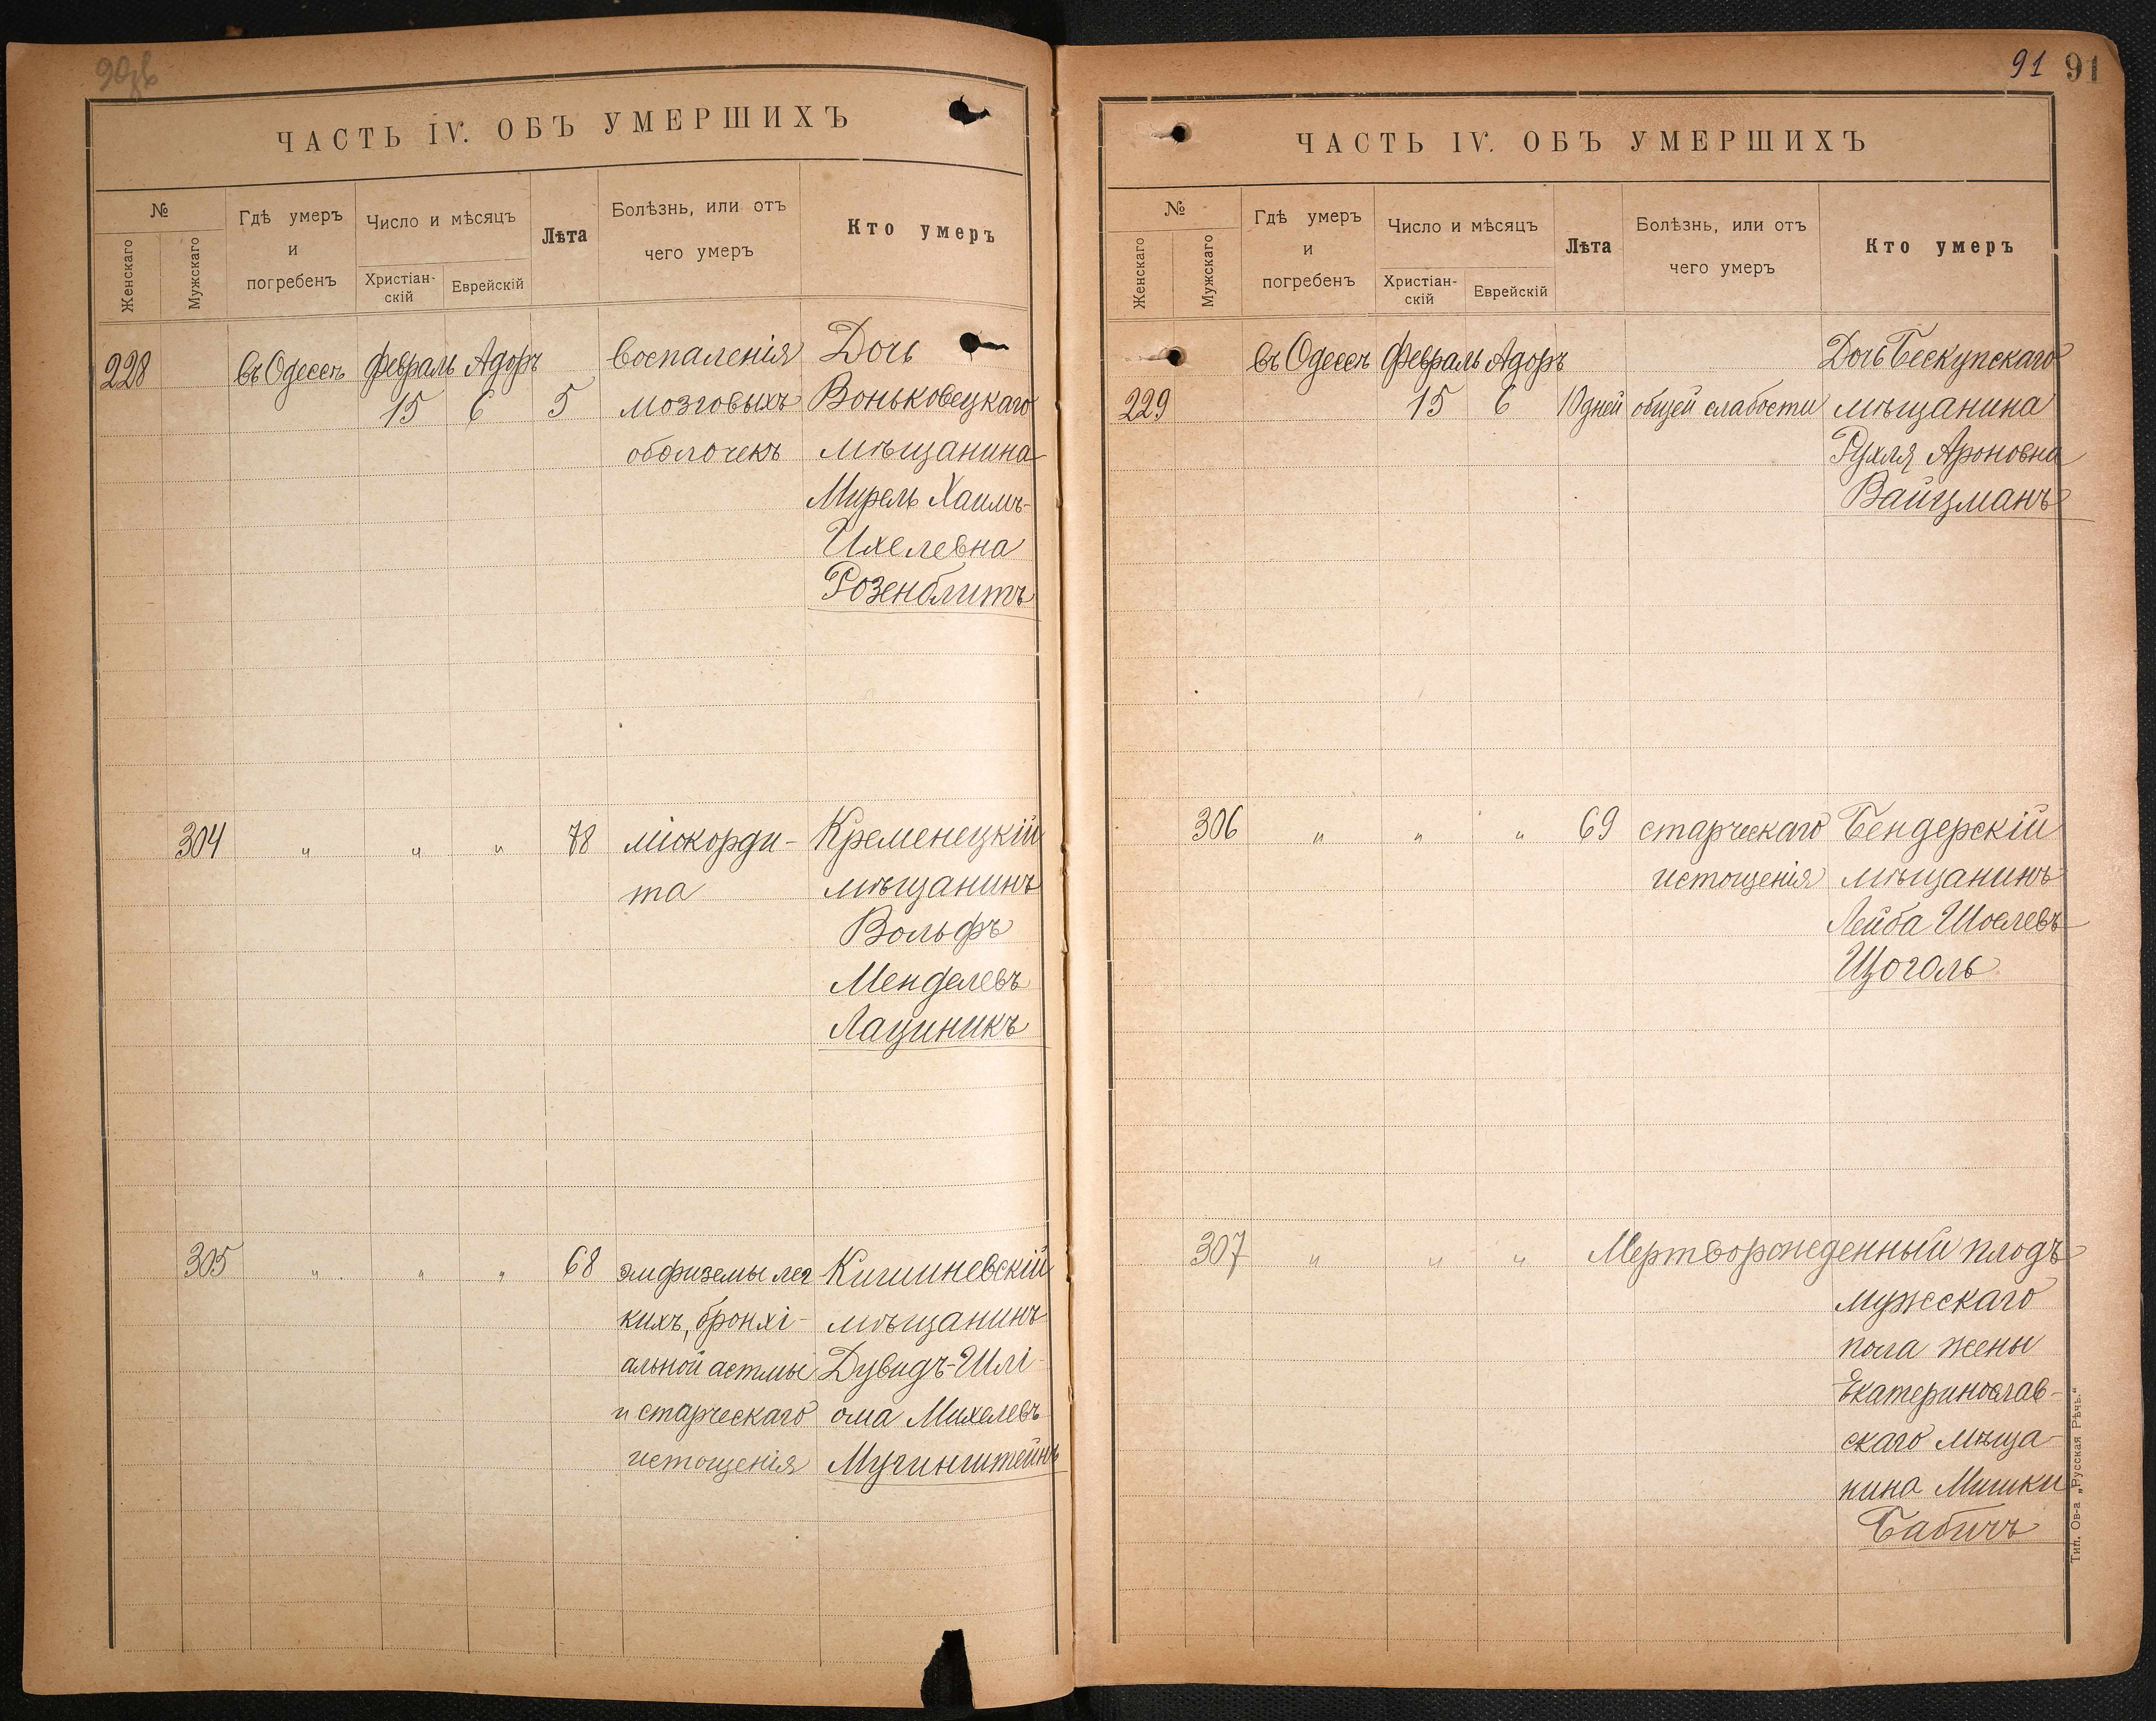 90об
ЧАСТЬ IV. ОБЪ УМЕРШИХЪ
№
Женскаго
Мужскаго
Гдѣ умеръ
и
погребенъ
Число и мѣсяцъ
Христіан-
скій
Еврейскій
Лѣта
Болѣзнь, или отъ
чего умеръ
Кто умеръ
228 въ Одессѣ Февраль Адоръ воспаленія Дочь
15 6 5 мозговыхъ Воньковецкаго
оболочекъ мѣщанина
Мирель Хаимъ-
Ихелевна
Розенблитъ
304 " " " 78 міокорди- Кременецкій
та мѣщанинъ
Вольфъ
Менделевъ
Лациникъ
305 " " " 68 эмфиземы лег Кишиневскій
кихъ, бронхі- мѣщанинъ
альной астмы Дувидъ-Шлі-
и старческаго ома Михелевъ
истощенія Мучинштейнъ
91 91
ЧАСТЬ IV. ОБЪ УМЕРШИХЪ
№
Женскаго
Мужскаго
Гдѣ умеръ
и
погребенъ
Число и мѣсяцъ
Христіан-
скій
Еврейскій
Лѣта
Болѣзнь, или отъ
чего умеръ
Кто умеръ
въ Одессѣ Февраль Адоръ Дочь Бескупскаго
229 15 6 10 дней общей слабости мѣщанина
Рухля Ароновна
Вайцманъ
306 " " " 69 старческаго Бендерскій
истощенія мѣщанинъ
Лейба Шоелевъ
Щоголь
307 " " " Мертворожденный плодъ
мужескаго
пола жены
Екатеринослав-
скаго мѣща-
нина Мишки
Бабичъ
Тип. Ов-а „Русская Рѣчь.“